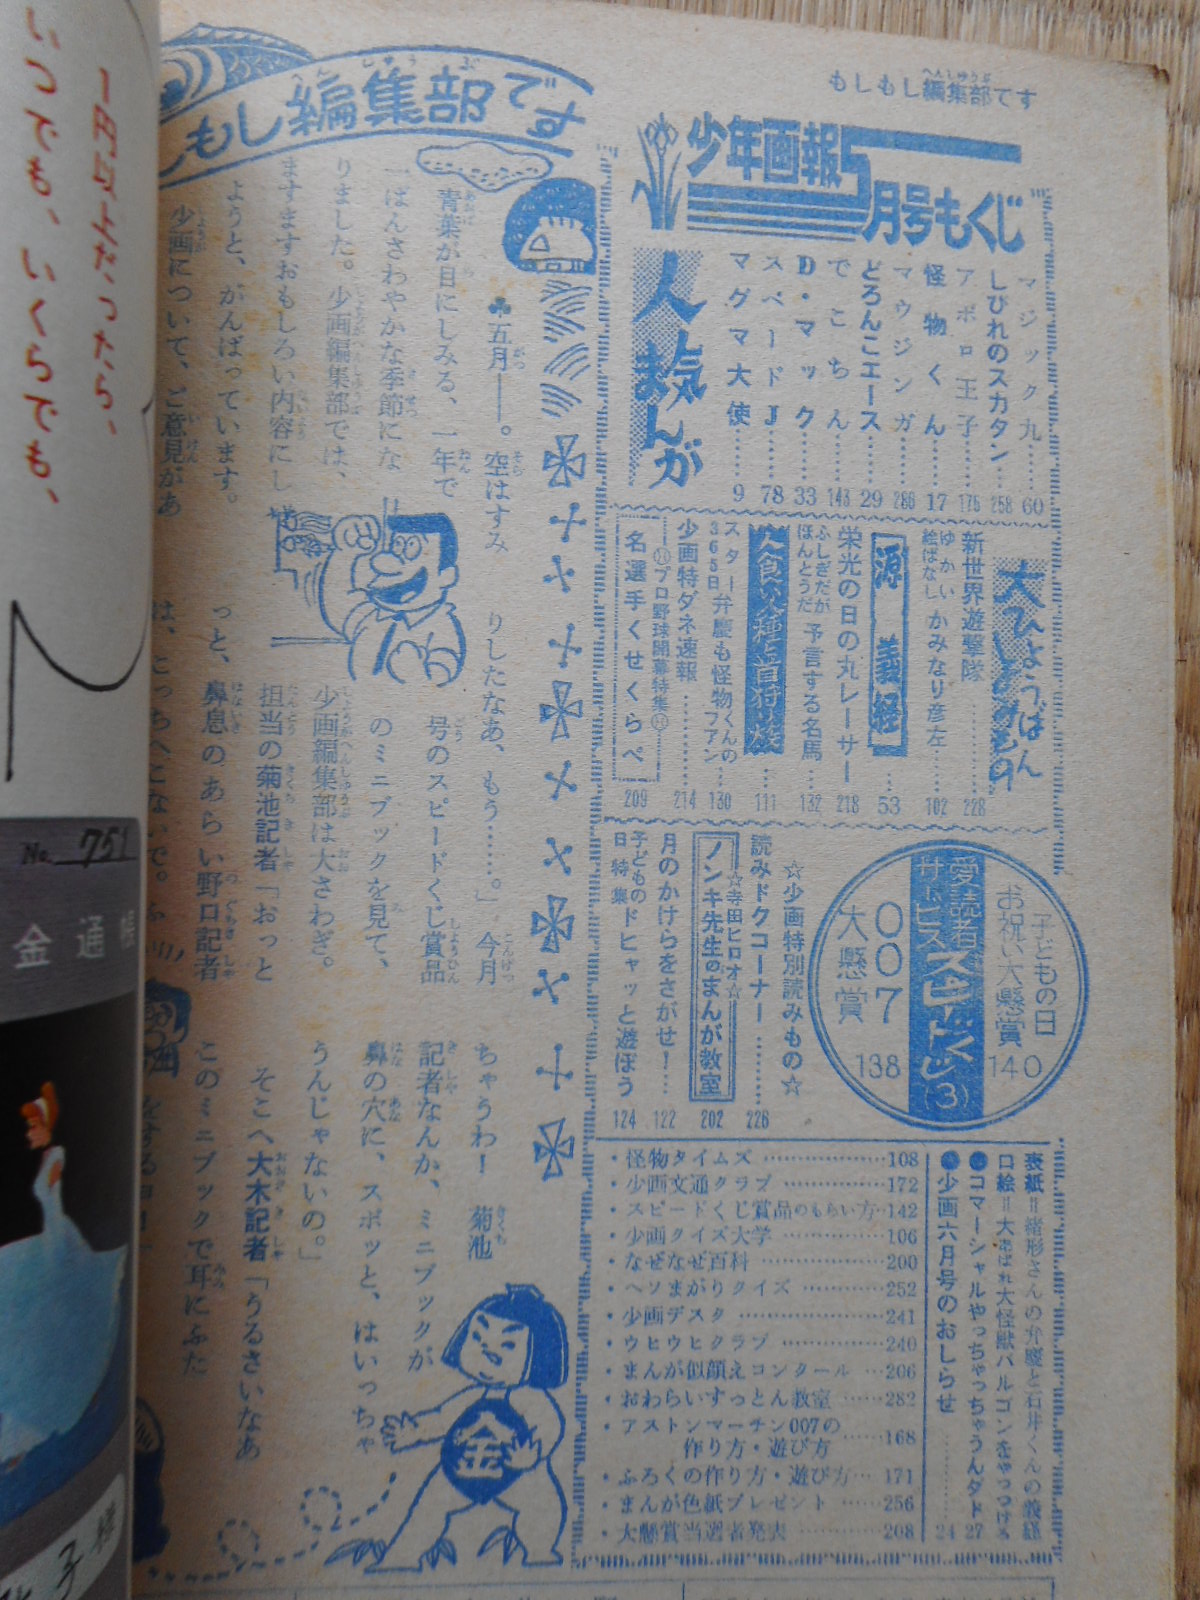 もしもし編集部です
少年画報5月号もくじ
人気まんが
マジック九……60
しびれのスカタン……258
アポロ王子……176
怪物くん……17
マウジンガ……286
どろんこエース……29
でこちん……148
D・マック……33
スペードJ……78
マグマ大使……9
大ひょうばんよみもの
新世界遊撃隊……228
ゆかい絵ばなし かみなり彦左……102
源義経……53
栄光の日の丸レーサー 218
ふしぎだがほんとうだ 予言する名馬 132
人食い人種と首狩り族…111
スター弁慶も怪物くんの365日ファン…130
少画特ダネ速報……214
プロ野球開幕特集
名選手くせくらべ 209
子どもの日お祝い大懸賞 140
愛読者サービススピードくじ(3)
007大懸賞 138
☆少画特別読みもの☆
読みドクコーナー……226
☆寺田ヒロオ☆
ノンキ先生のまんが教室 202
月のかけらをさがせ!…122
子どもの日特集 ドヒャッと遊ぼう 124
表紙=緒形さんの弁慶と石井くんの義経
口絵=大あばれ大怪獣バルゴンをやっつけろ
●コマーシャルやっちゃっちゃうんダド 27
●少画六月号のおしらせ……24
・怪物タイムズ……108
・少画文通クラブ……172
・スピードくじ賞品のもらい方…142
・少画クイズ大学……106
・なぜなぜ百科……200
・ヘソまがりクイズ……252
・少画デスタ……241
・ウヒウヒクラブ……240
・まんが似顔えコンクール…206
・おわらいすっとん教室……282
・アストンマーチン007の
作り方・遊び方……168
・ふろくの作り方・遊び方…171
・まんが色紙プレゼント……256
・大懸賞当選者発表……208
もし編集部です
♣五月――。空はすみ
青葉が目にしみる、一年で
一ばんさわやかな季節にな
りました。少画編集部では、
ますますおもしろい内容にし
ようと、がんばっています。
少画について、ご意見があ
りしたなあ、もう……。」今月
号のスピードくじ賞品
のミニブックを見て、
少画編集部は大さわぎ。
担当の菊池記者「おっと
っと、鼻息のあらい野口記者
は、こっちへこないで。ふ
ちゃうわ! 菊池
記者なんか、ミニブックが
鼻の穴に、スポッと、はいっちゃ
うんじゃないの。」
そこへ大木記者「うるさいなあ
このミニブックで耳にふた
をするヨ!
金
1円以上だったら、
いつでも、いくらでも、
No. 751
金通帳
子様